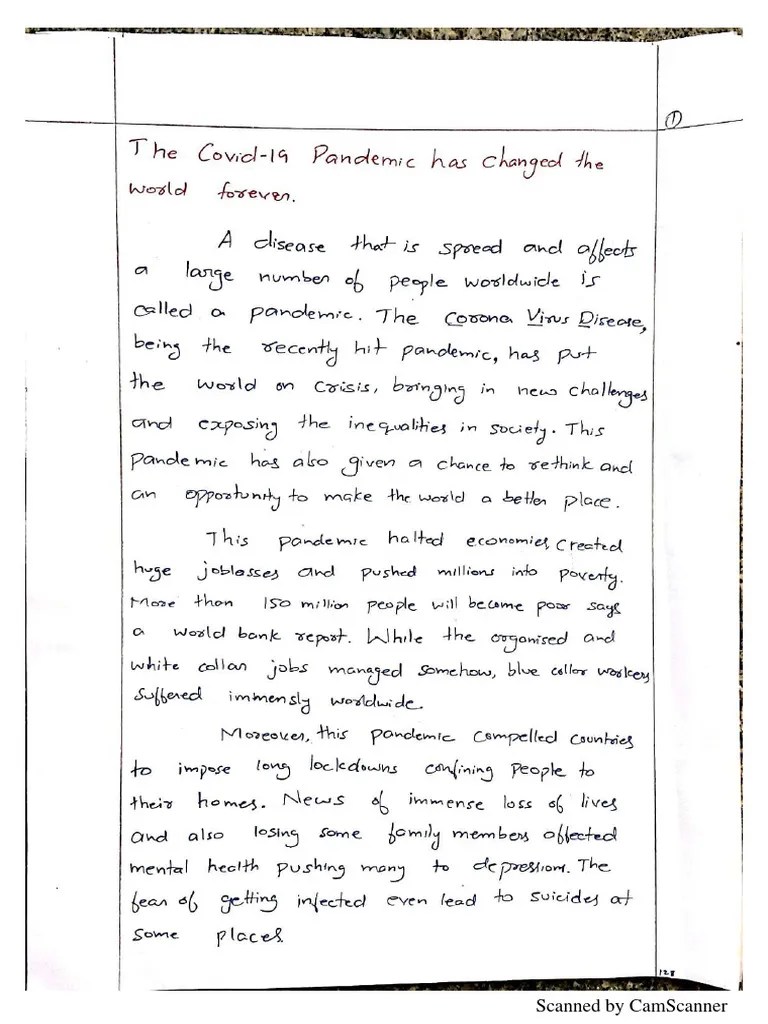 ①
The Covid-19 Pandemic has changed the
world forever.
A disease that is spread and affects
a large number of people worldwide is
called a pandemic. The Corona Virus Disease,
being the recently hit pandemic, has put
the world on crisis, bringing in new challenges
and exposing the inequalities in society. This
pandemic has also given a chance to rethink and
an opportunity to make the world a better place.
This pandemic halted economies, created
huge joblosses and pushed millions into poverty.
More than 150 million people will become poor says
a world bank report. While the organised and
white collar jobs managed somehow, blue collor workers
suffered immensly worldwide.
Moreover, this pandemic compelled countries
to impose long lockdowns confining people to
their homes. News of immense loss of lives
and also losing some family members affected
mental health pushing many to depression. The
fear of getting infected even lead to suicides at
some places.
128
Scanned by CamScanner